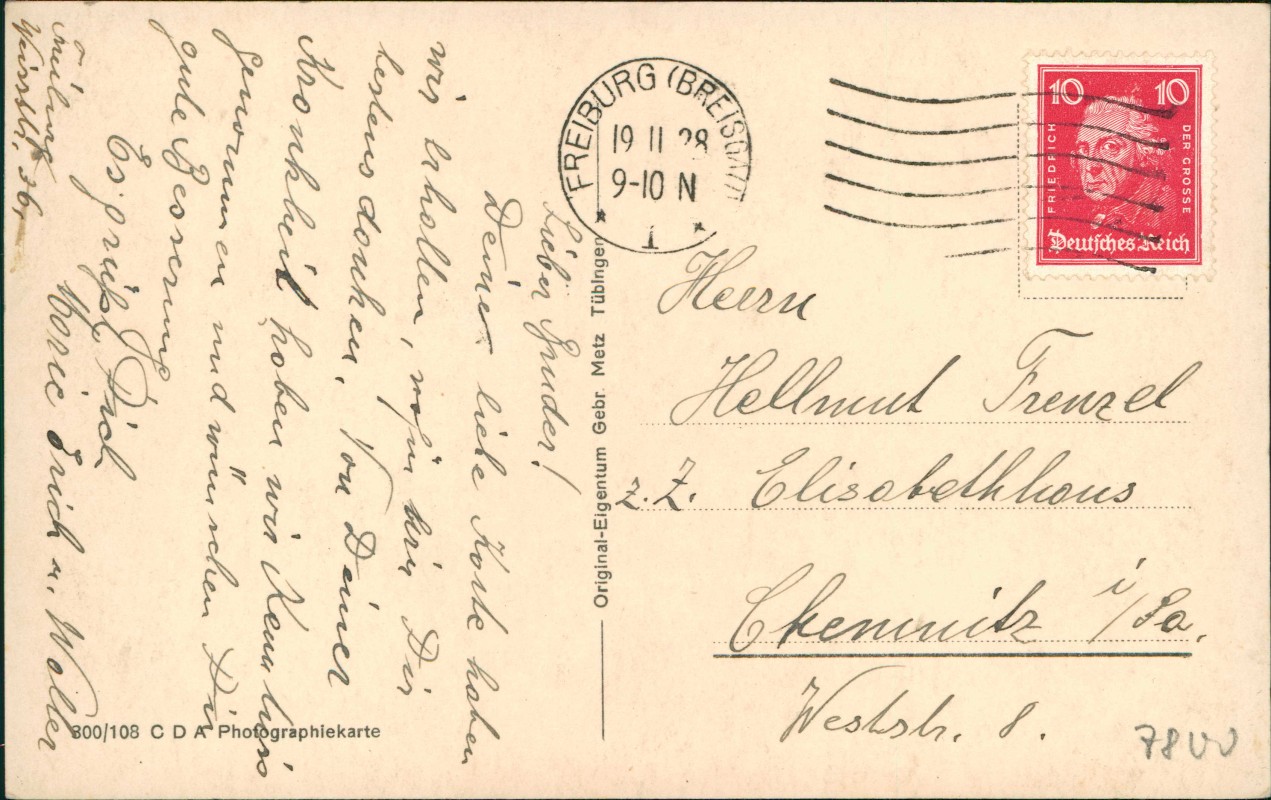 Lieber Bruder!
Deine liebe Karte haben
wir erhalten, wofür wir Dir
bestens danken. Von Deiner
Krankheit haben wir Kenntniss
genommen und wünschen Dir
gute Besserung
Es grüßt Dich
Marie Erich u. Walter
Freiburg
36,
Original-Eigentum Gebr. Metz Tübingen
300/108 C D A Photographiekarte
FREIBURG (BREISGAU)
19 II 28
9-10 N
* 1 *
10 10
FRIEDRICH DER GROSSE
Deutsches Reich
Herrn
Hellmut Frenzel
z. Z. Elisabethhaus
Chemnitz i/Sa.
Weststr. 8.
78